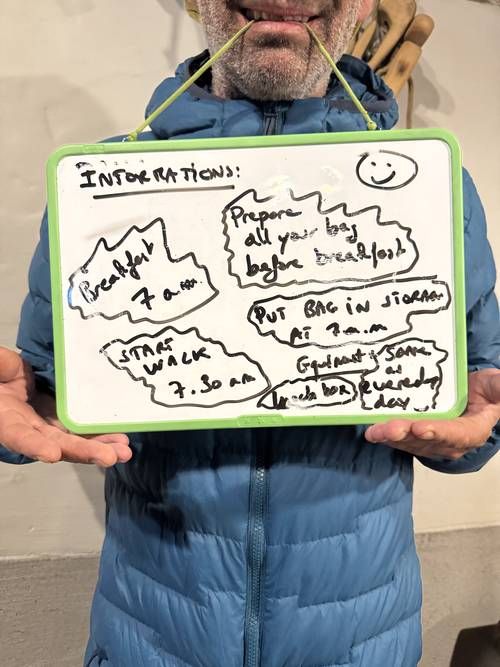 INFORMATIONS:
Breakfast
7 a.m.
Prepare
all your bag
before breakfast
PUT BAG IN STORAGE
AT 7 a.m
START
WALK
7.30 am
Equipment
lunch box
SAME
as
everyday
day